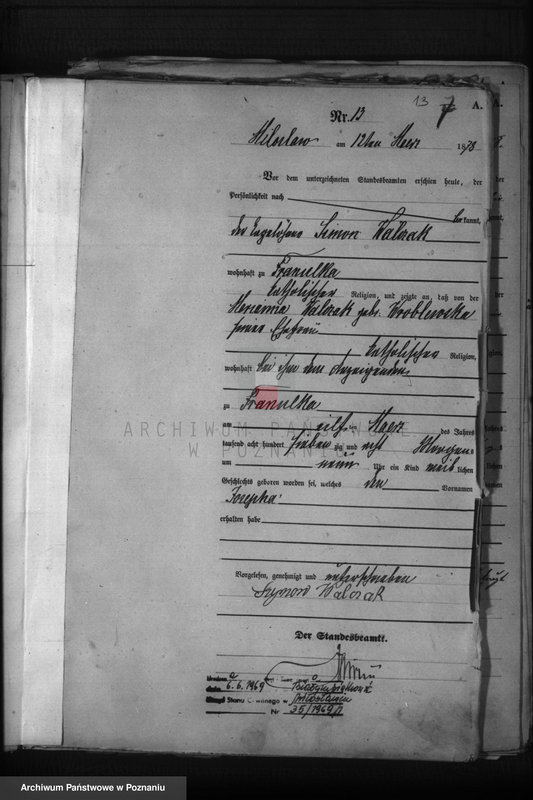 13
A.
Nr. 13
Miloslaw am 12ten Maerz 1878
Vor dem unterzeichneten Standesbeamten erschien heute, der
Persönlichkeit nach
be kannt,
der Tagelöhner Simon Walczak
wohnhaft zu Franulka
katholischer Religion, und zeigte an, daß von der
Marianna Walczak geb. Wroblewska
seiner Ehefrau
katholischer Religion,
wohnhaft bei ihm dem Anzeigenden
zu Franulka
am eilf ten Maerz des Jahres
tausend acht hundert sieben zig und acht Morgens
um neun Uhr ein Kind weib lichen
Geschlechts geboren worden sei, welches den Vornamen
Josepha
erhalten habe
Vorgelesen, genehmigt und unterschrieben
Szymon Walczak
Der Standesbeamte.
6.6.1969
Stanu Cywilnego w
Nr 35/1969/
ARCHIWUM PAŃSTWOWE
W POZNANIU
Archiwum Państwowe w Poznaniu